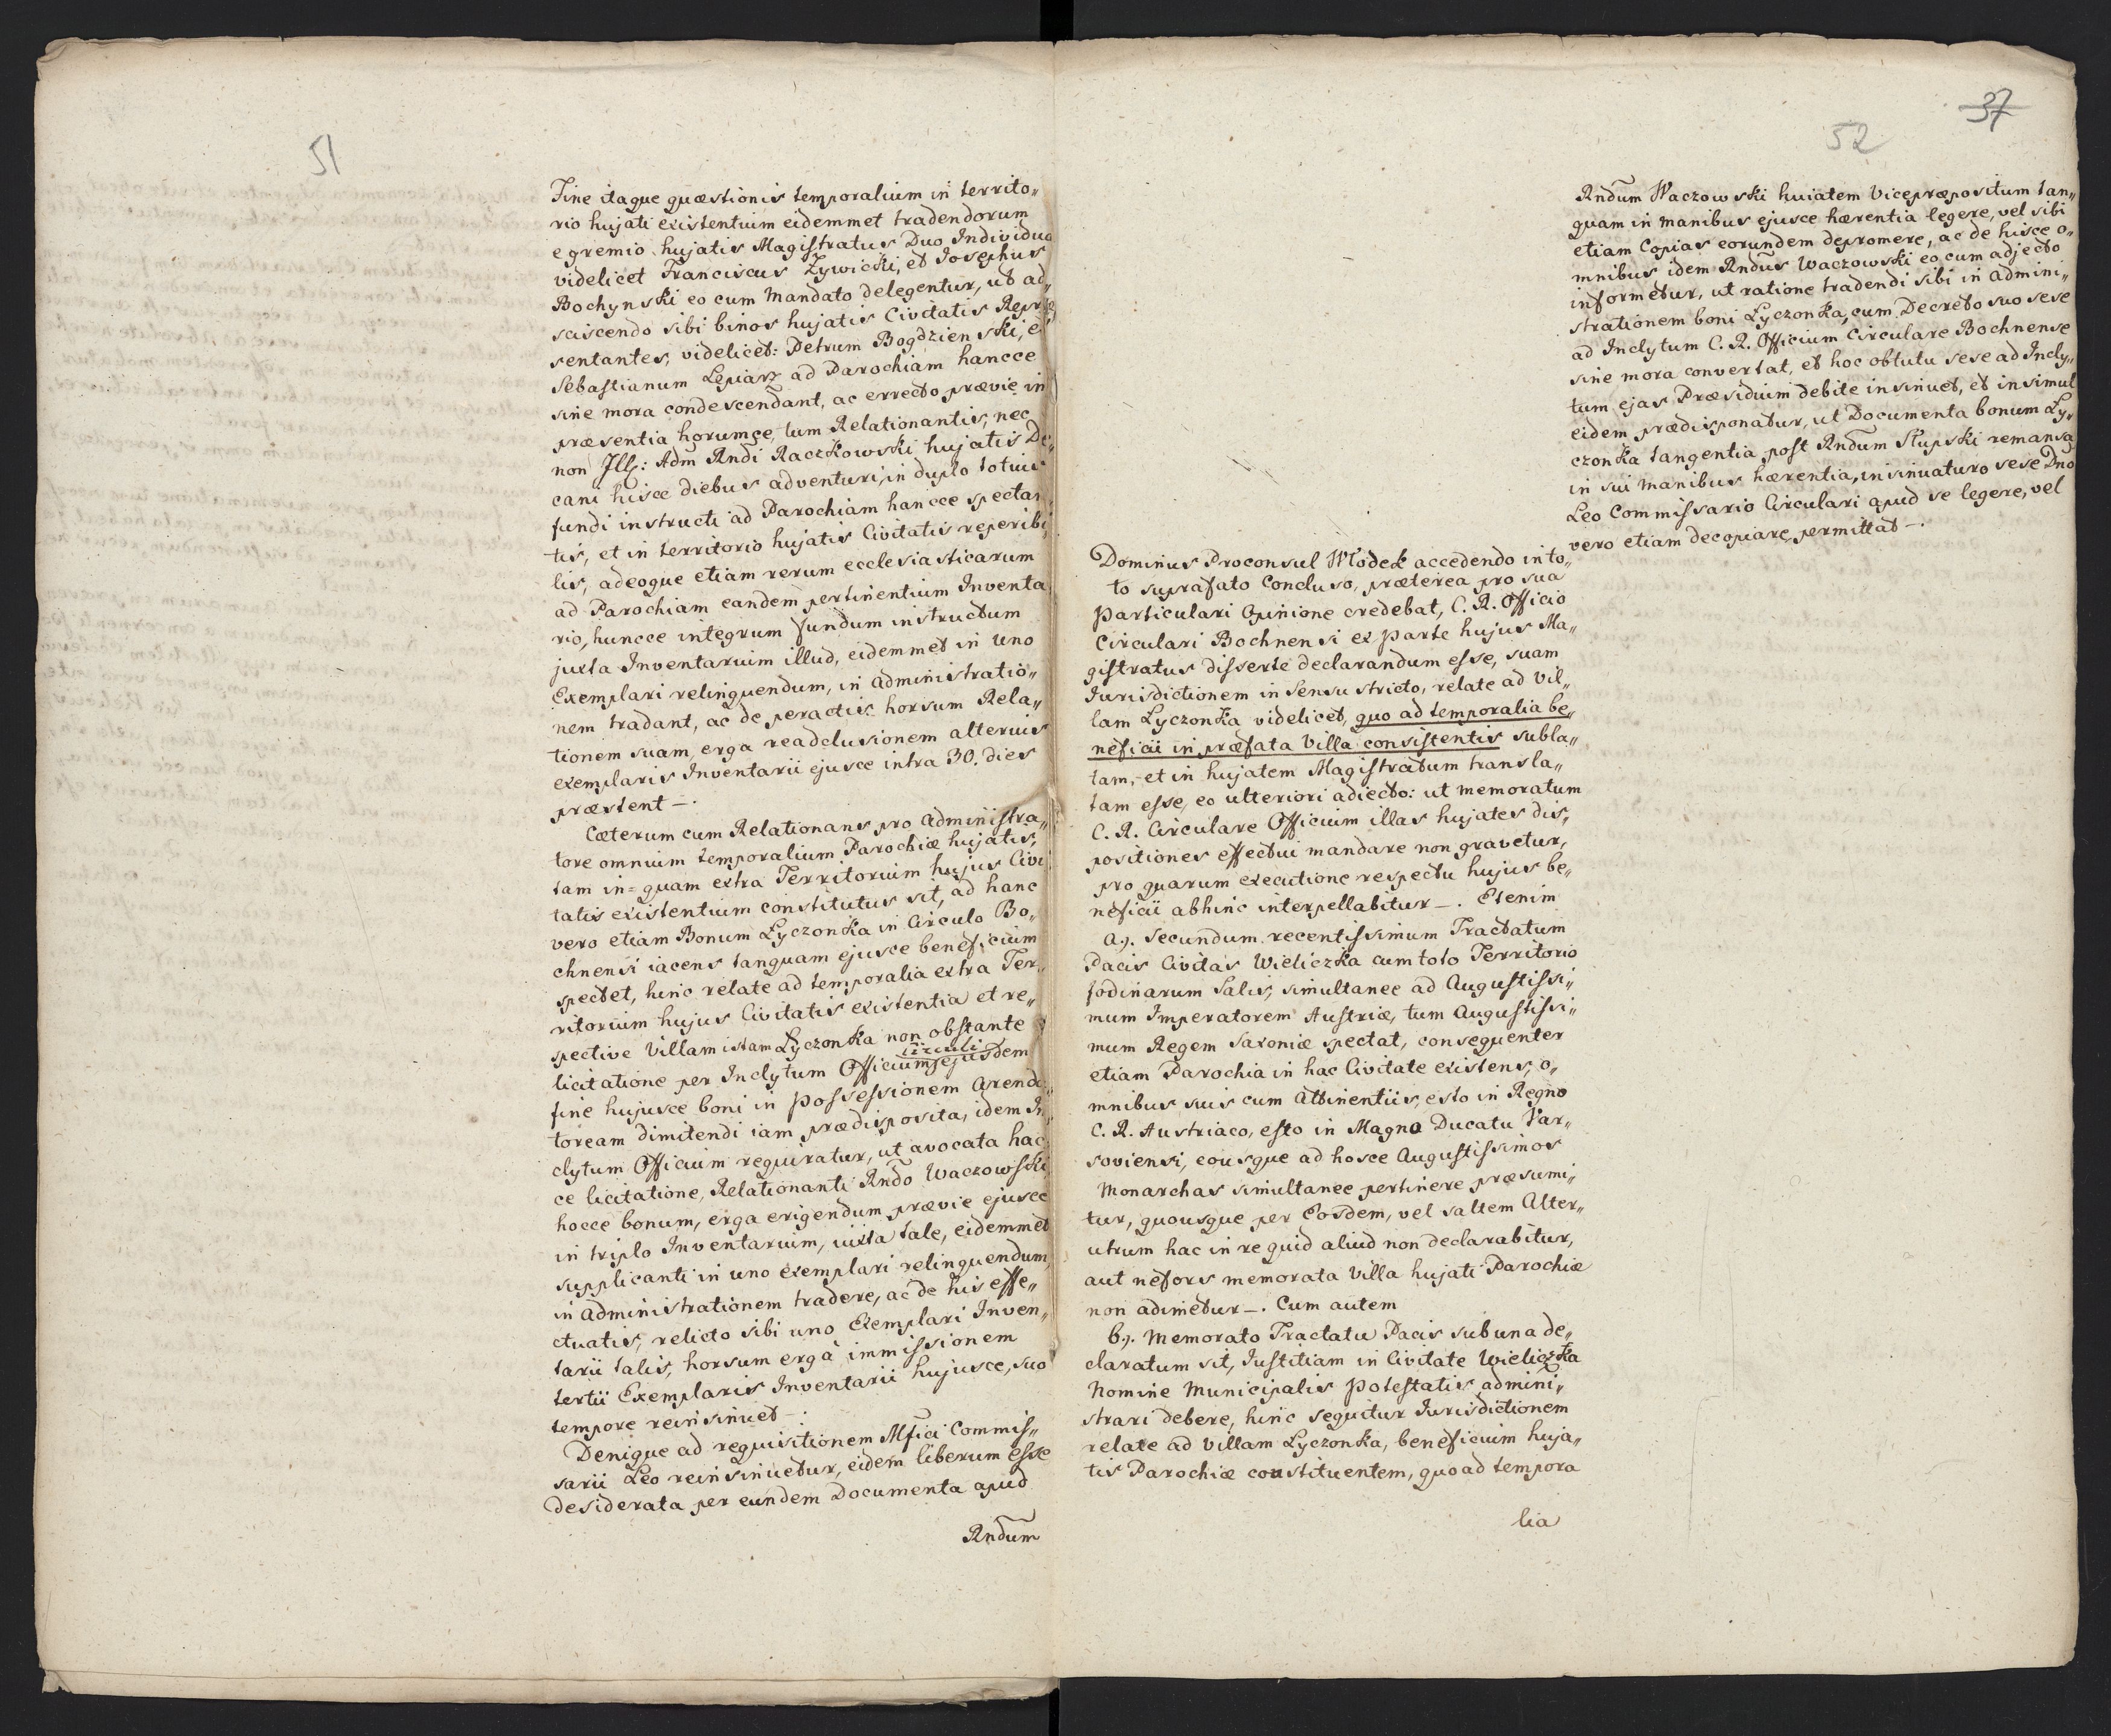 51
Fine itaque quæstionis temporalium in territo„
rio hujati existentium eidemmet tradendorum
e gremio hujatis Magistratus Duo Individua
videlicet Franciscus Zywicki, et Josephus
Bochynski eo cum Mandato delegentur, ut ad„
sciscendo sibi binos hujatis Civitatis Repræ„
sentantes, videlicet: Petrum Bogdzienski, et
Sebastianum Lepiarz ad Parochiam hancce
sine mora condescendant, ac errecto prævie in
præsentia horumce, tum Relationantis, nec
non Ill: Adm Rndi Raczkowski hujatis De„
cani hisce diebus adventuri, in duplo totius
fundi instructi ad Parochiam hancce spectan„
tis, et in territorio hujatis Civitatis reperibi„
lis, adeoque etiam rerum ecclesiasticarum
ad Parochiam eandem pertinentium Inventa„
rio, huncce integrum fundum instructum
juxta Inventarium illud, eidemmet in uno
Exemplari relinquendum, in administratio„
nem tradant, ac de peractis horsum Rela„
tionem suam erga readclusionem alterius
exemplaris Inventarii ejusce intra 30. dies
præstent –.
Cæterum cum Relationans pro administra„
tore omnium temporalium Parochiæ hujatis,
tam in= quam extra Territorium hujus Civi„
tatis existentium constitutus sit, ad hanc
vero etiam Bonum Lyczonka in Circulo Bo„
chnensi iacens tanquam ejusce beneficium
spectet, hinc relate ad temporalia extra Ter„
ritorium hujus Civitatis existentia et re„
spective Villam istam Lyczonka non obstante
circuli
licitatione per Inclytum Officium ejusdem
fine hujusce boni in possessionem arenda„
toream dimitendi iam prædisposita, idem In„
clytum Officium requiratur, ut avocata hac„
ce licitatione, Relationanti Rndo Waczowski
hocce bonum, erga erigendum prævie ejusce
in triplo Inventarium, iuxta tale, eidemmet
supplicanti in uno exemplari relinquendum,
in administrationem tradere, ac de his effe„
ctuatis, relicto sibi uno Exemplari Inven„
tarii talis, horsum erga immissionem
tertii Exemplaris Inventarii hujusce, suo
tempore reinsinuet –.
Denique ad requisitionem Mfici Commis„
sarii Leo reinsinuetur, eidem liberum esse
desiderata per eundem Documenta apud
Rndum
37
52
Rndum Waczowski huiatem Vicepræpositum tan„
quam in manibus ejusce hærentia legere, vel sibi
etiam Copias eorundem depromere, ac de hisce o„
mnibus idem Rndus Waczowski eo cum adjecto
informetur, ut ratione tradendi sibi in admini„
strationem boni Lyczonka, cum Decreto suo sese
ad Inclytum C. R. Officium Circulare Bochnense
sine mora convertat, et hoc obtutu sese ad Incly„
tum ejas Præsidium debite insinuet, et insimul
eidem prædisponatur, ut Documenta bonum Ly„
czonka tangentia post Rndum Słupski remansa
in sui manibus hærentia, insinuaturo sese Dno
Leo Commissario Circulari apud se legere, vel
vero etiam decopiare permittat –.
Dominus Proconsul Włodek accedendo in to„
to suprafato Concluso, præterea pro sua
particulari Opinione credebat, C. R. Officio
Circulari Bochnensi ex parte hujus Ma„
gistratus disserte declarandum esse, suam
Jurisdictionem in sensu stricto, relate ad vil„
lam Lyczonka videlicet, quo ad temporalia be„
neficii in præfata Villa consistentis subla„
tam, et in hujatem Magistratum transla„
tam esse, eo ulteriori adiecto: ut memoratum
C. R. Circulare Officium illas hujates dis„
positiones effectui mandare non gravetur,
pro quarum executione respectu hujus be„
neficii abhinc interpellabitur –. Etenim
a). Secundum recentissimum Tractatum
Pacis Civitas Wieliczka cum toto Territorio
fodinarum Salis, simultanee ad Augustissi„
mum Imperatorem Austriæ, tum Augustissi„
mum Regem Saxoniæ spectat, consequenter
etiam Parochia in hac Civitate existens, o„
mnibus suis cum attinentiis, esto in Regno
C. R. Austriaco, esto in Magno Ducatu Var„
soviensi, eousque ad hosce Augustissimos
Monarchas simultanee pertinere præsumi„
tur, quousque per Eosdem, vel saltem Alter„
utrum hac in re quid aliud non declarabitur,
aut nefors memorata Villa hujati Parochiæ
non adimetur –. Cum autem
b). Memorato Tractatu Pacis sub una de„
claratum sit, Justitiam in Civitate Wieliczka
Nomine Municipalis potestatis admini„
strari debere, hinc sequitur Jurisdictionem
relate ad villam Lyczonka, beneficium huja„
tis Parochiæ constituentem, quo ad tempora
lia